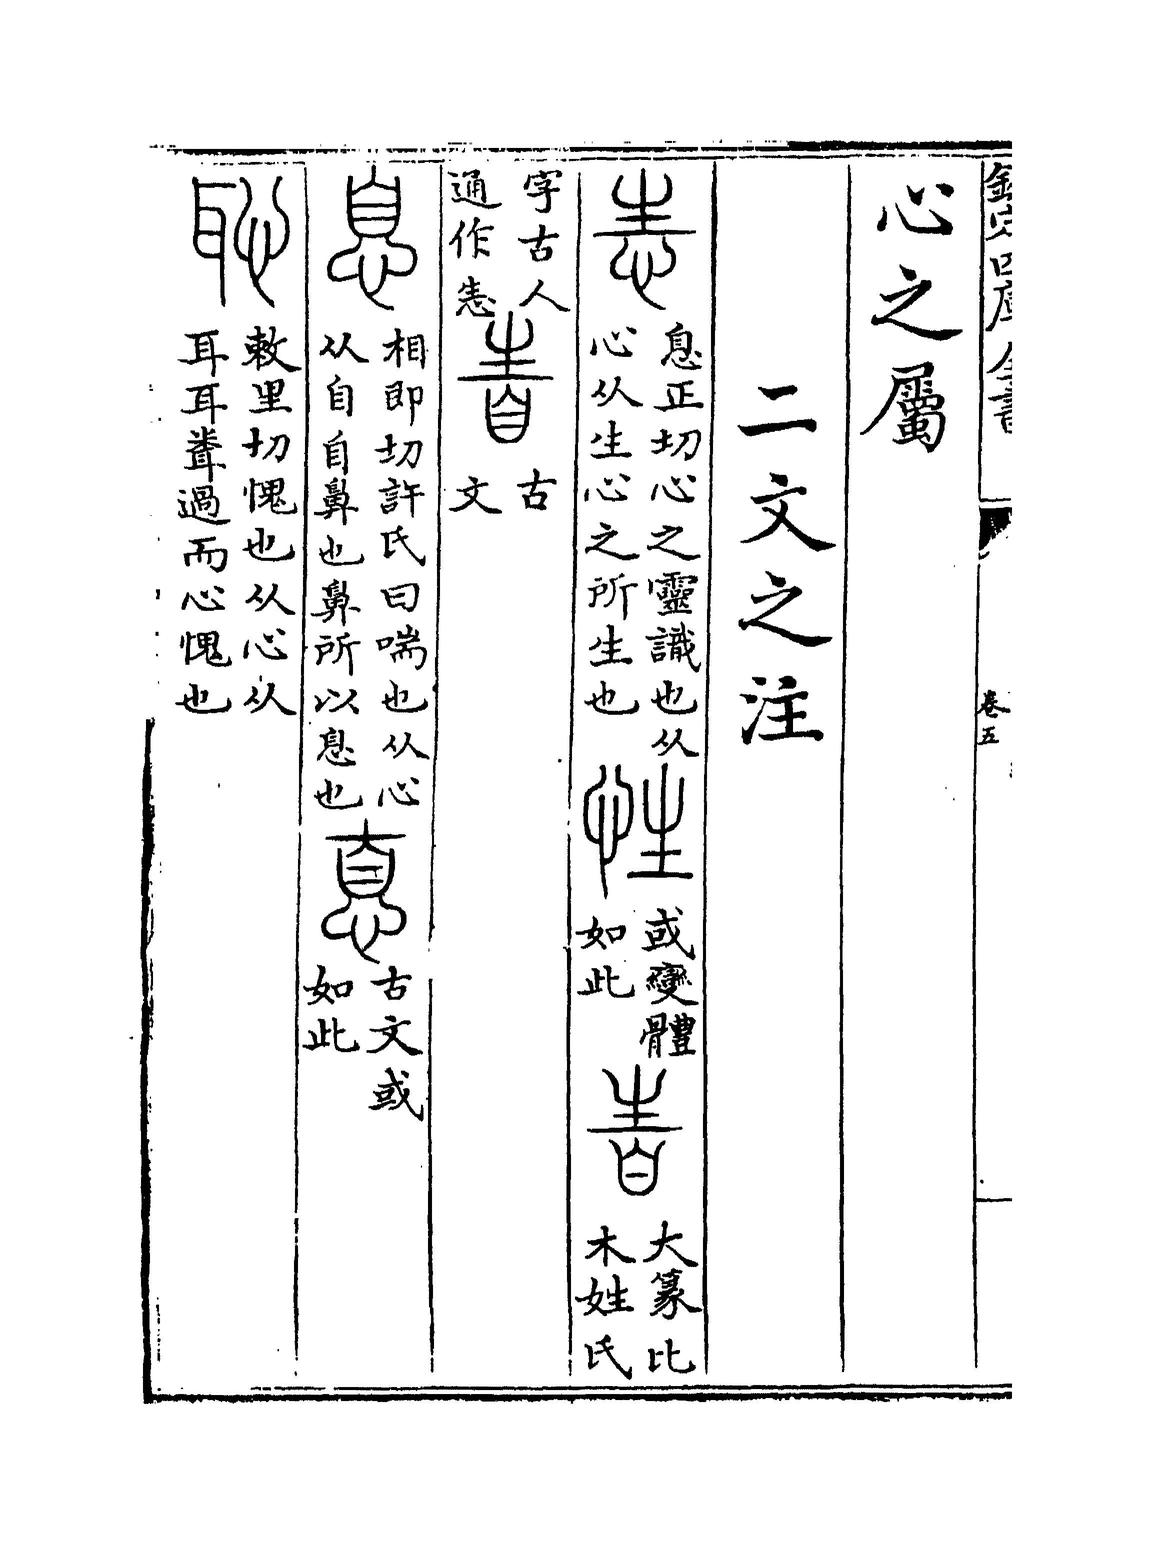 欽定四庫全書
卷五
心之屬
二文之注
𢘫
息正切心之靈識也从
心从生心之所生也
性
或變體
如此
大篆比
木姓氏
字古人
通作𢘫
古
文
息
相即切許氏曰喘也从心
从自自鼻也鼻所以息也
古文或
如此
恥
敕里切愧也从心从
耳耳過而心愧也